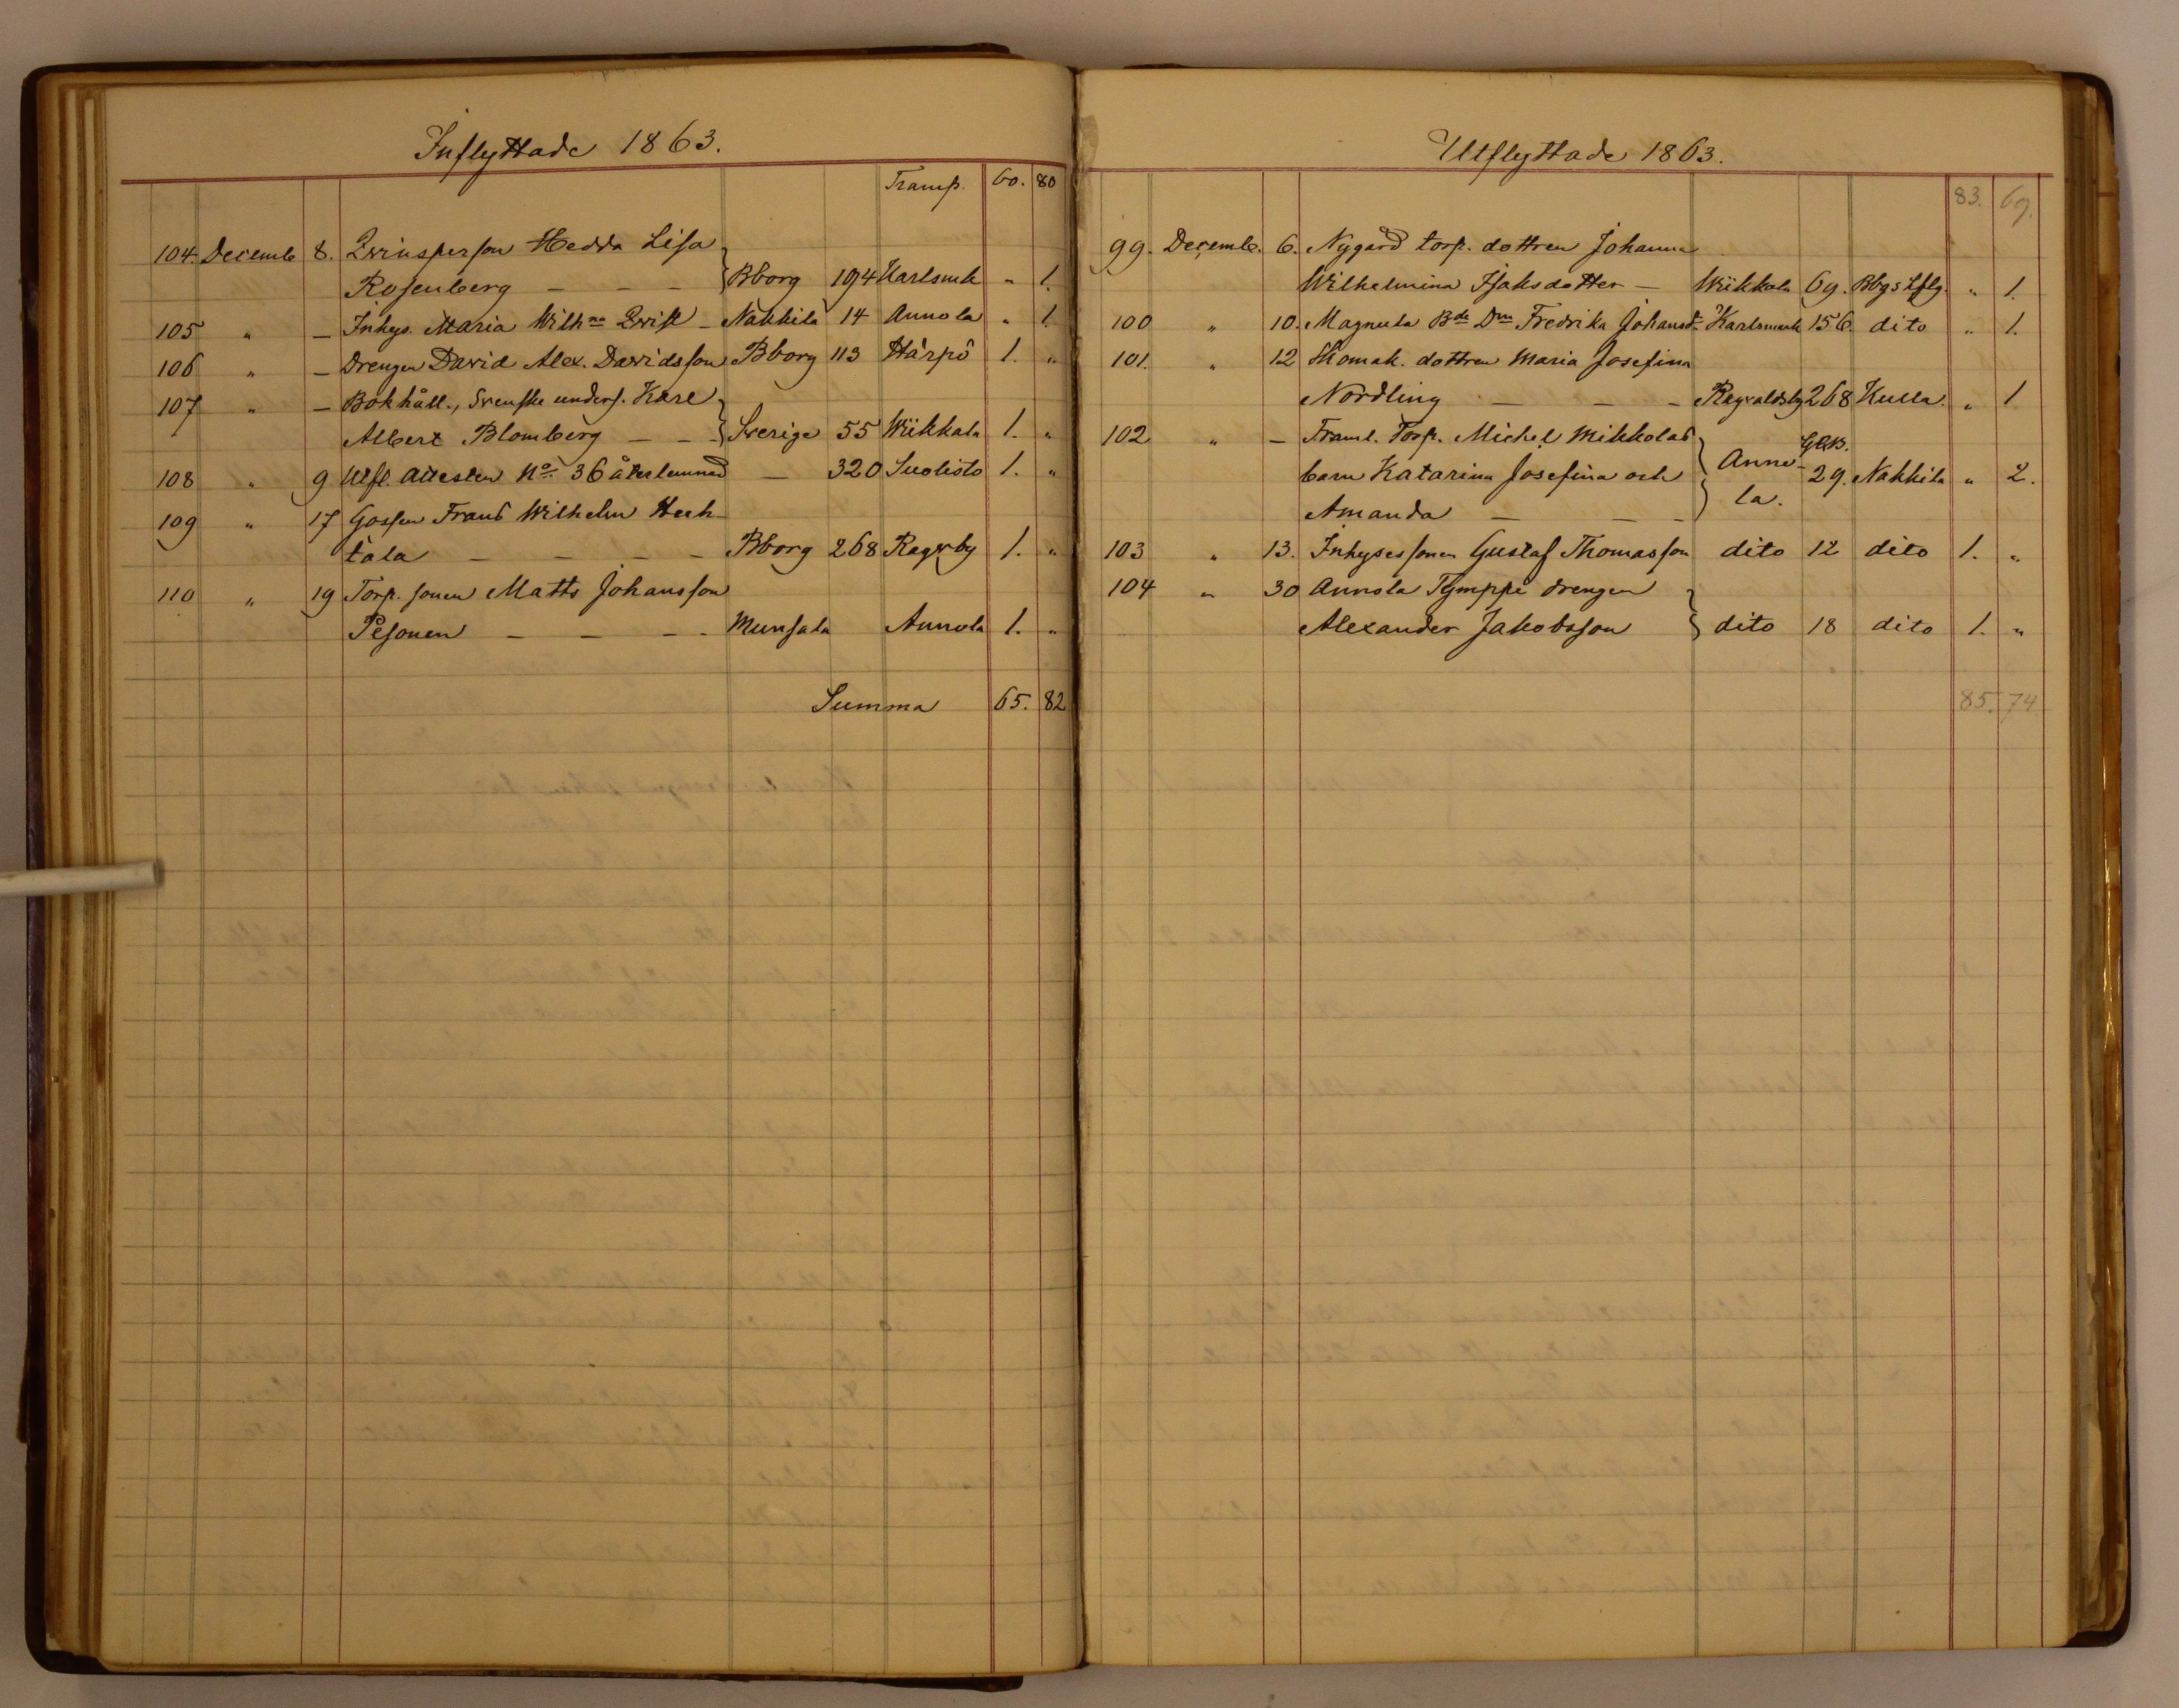 Inflyttade 1863.
Transp. 60. 80
104. Decemb 8. Qvinsperson Hedda Lisa
Rosenberg - - - Bborg 194 Karlsmk " 1.
105 " - Inhys. Maria Wilhna Qvist - Nakkila 14 Annola " 1.
106 " - Drengen David Alex. Davidsson Bborg 113 Härpö 1. "
107 " - Bokhåll., Svenske unders. Karl
Albert Blomberg - - Sverige 55 Wiikkala 1. "
108 " 9 Utfl. Attesten No 36 återlemnad - 320 Suolisto 1. "
109 " 17 Gossen Frans Wilhelm Huh-
tala - - - - Bborg 268 Ragvby 1. "
110 " 19 Torp. sonen Matts Johansson
Pesonen - - - - Munsala Annola 1. "
Summa 65. 82
Utflyttade 1863.
83. 69.
99. Decemb. 6. Nygård torp. dottren Johanna
Wilhelmina Isaksdotter - Wiikkala 69. Bbgs Lfsg. " 1.
100 " 10. Magnula Bde Dm Fredrika Johansdr Karlsmark 156. dito " 1.
101. " 12 Skomak. dottren Maria Josefina
Nordling - - - Ragvaldsby 268 Kulla " 1
102 " - Framl. Torp. Michel Mikkolas
barn Katarina Josefina och Anno- 29. Nakkila " 2.
Amanda - - - la.
103 " 13. Inhysessonen Gustaf Thomasson dito 12 dito 1. "
104 " 30 Annola Tymppi drengen
Alexander Jakobsson dito 18 dito 1. "
85. 74